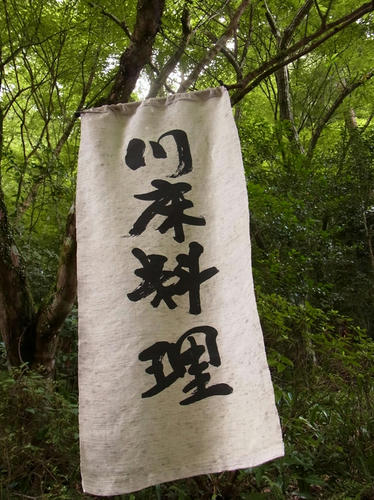 川床料理